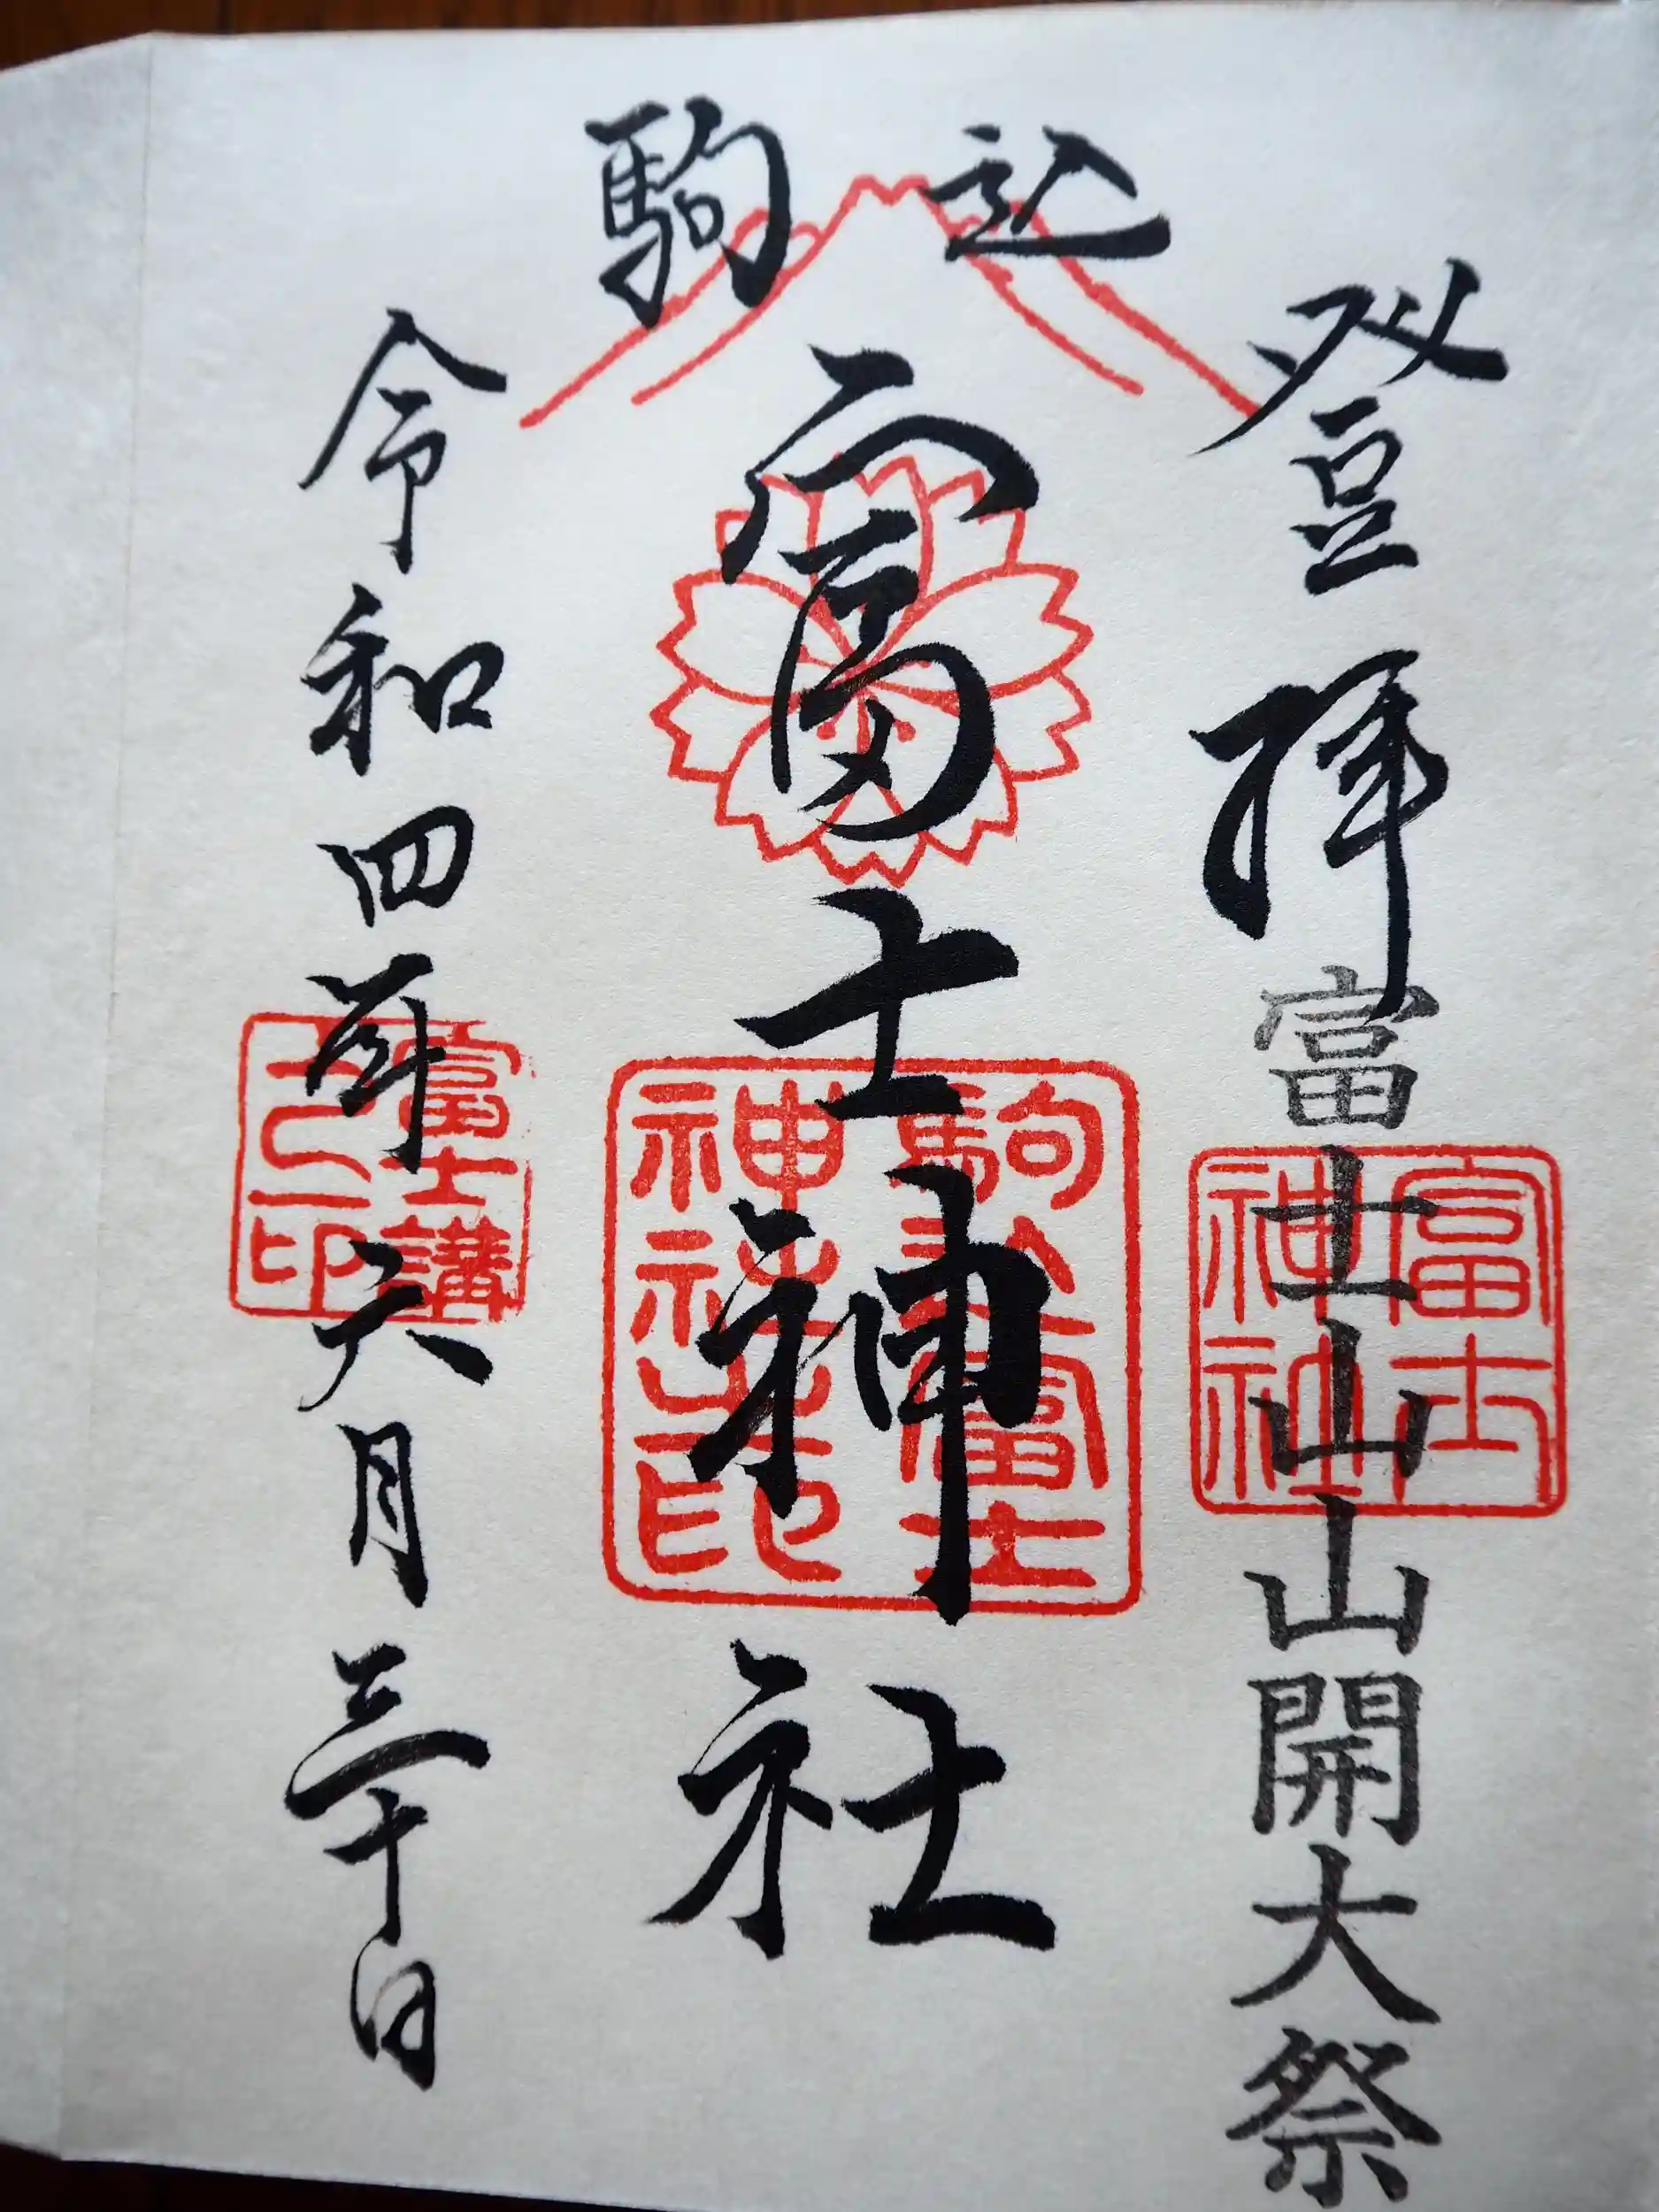 駒込
登拝
富士山山開大祭
富士神社
富士神社
駒込富士神社印
令和四年六月三十日
富士講